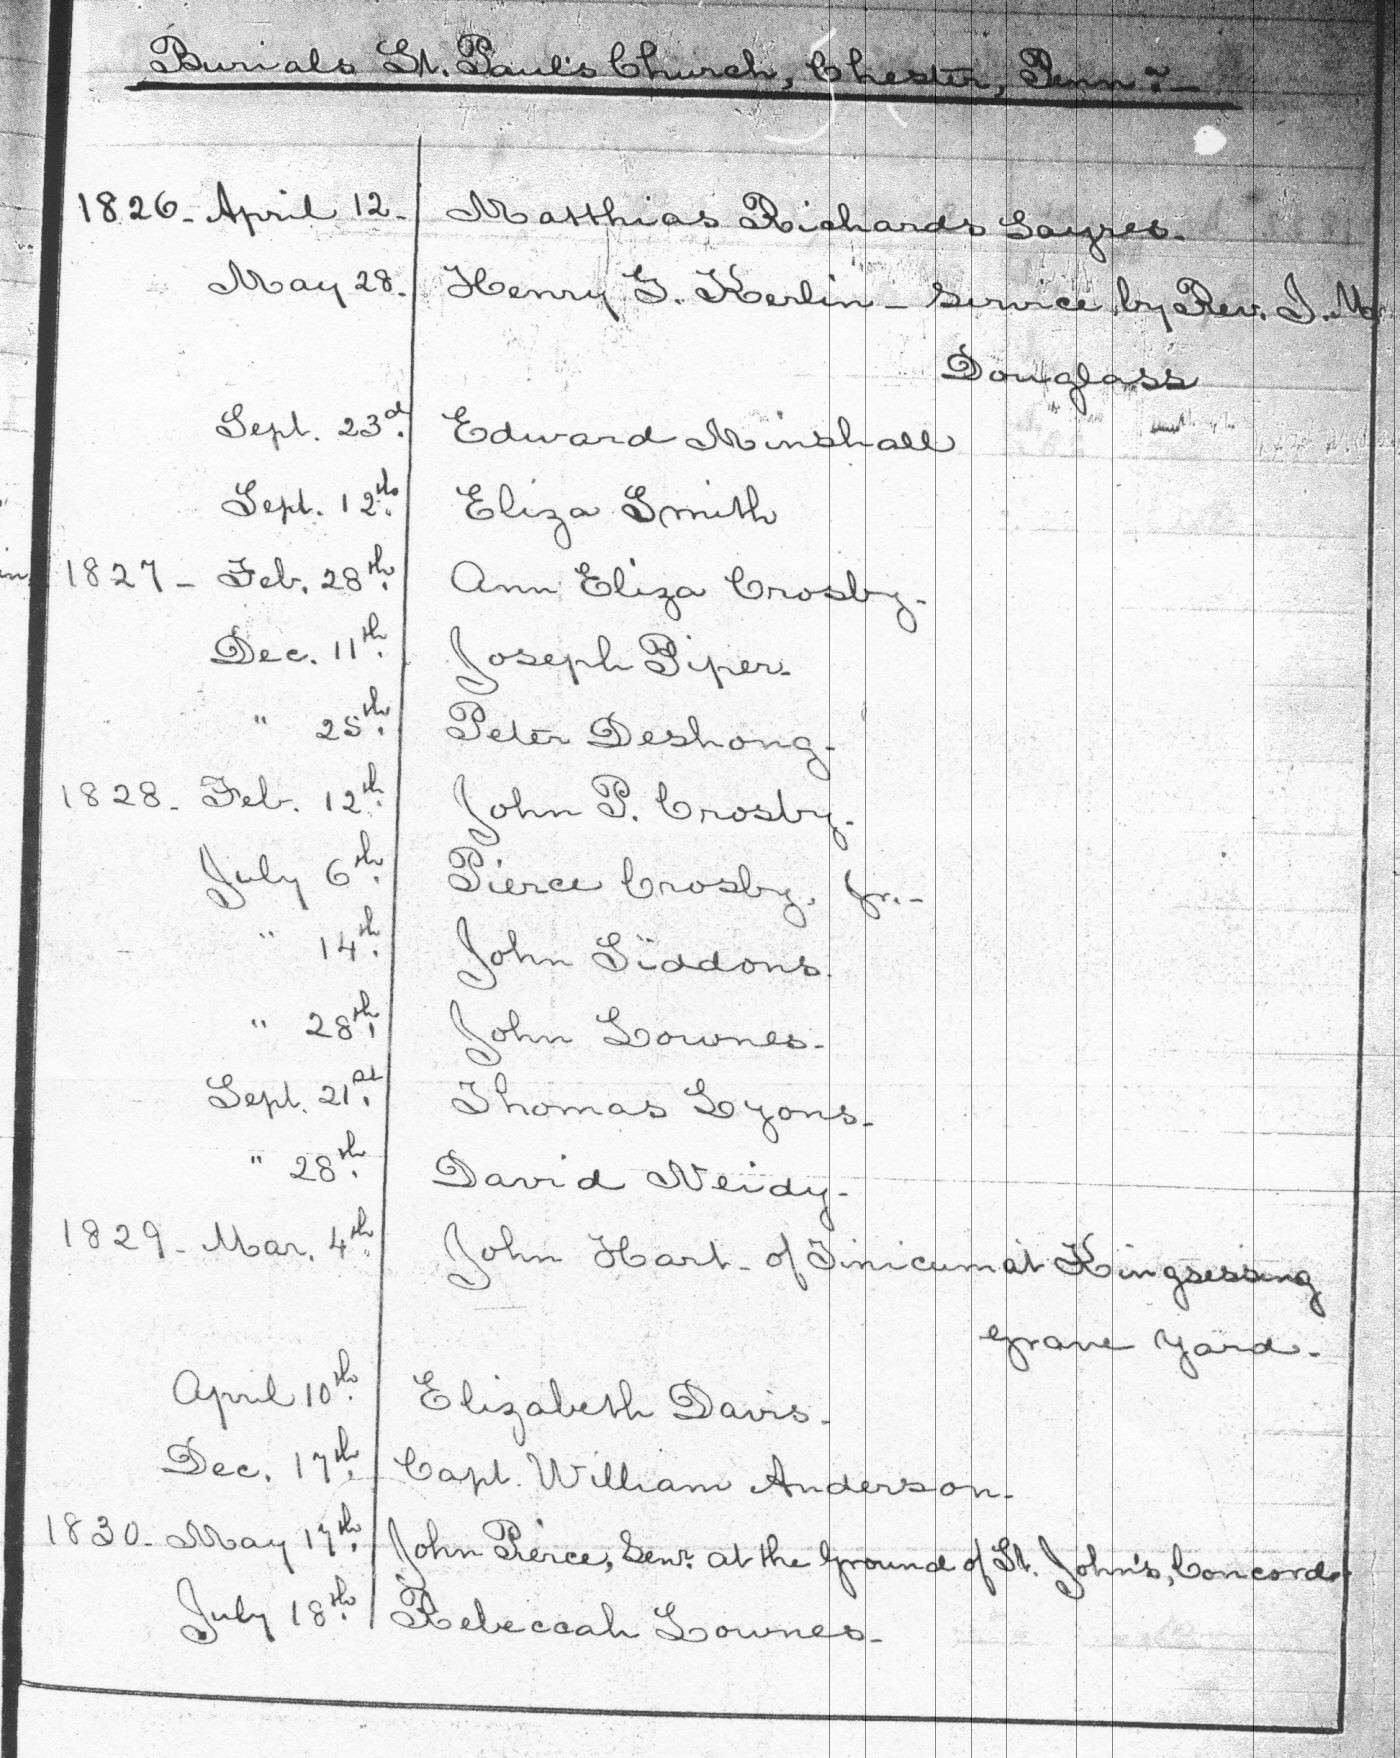 Burials St. Paul's Church, Chester, Penn:-
1826- April 12- Matthias Richards Sayres.
May 28. Henry G. Kerlin - Service by Rev. J. M.
Douglass
Sept. 23d. Edward Minshall
Sept. 12th. Eliza Smith
1827- Feb. 28th. Ann Eliza Crosby-
Dec. 11th. Joseph Piper-
" 25th. Peter Deshong-
1828- Feb. 12th. John P. Crosby-
July 6th. Pierce Crosby, Jr.-
" 14th. John Siddons.
" 28th. John Lownes-
Sept. 21st. Thomas Lyons-
" 28th. David Neidy-
1829- Mar. 4th. John Hart- of Tinicum at Kingsessing
Grave Yard-
April 10th. Elizabeth Davis-
Dec. 17th. Capt. William Anderson-
1830- May 17th. John Pierce, Senr. at the Ground of St. John's, Concord-
July 18th. Rebeccah Lownes-